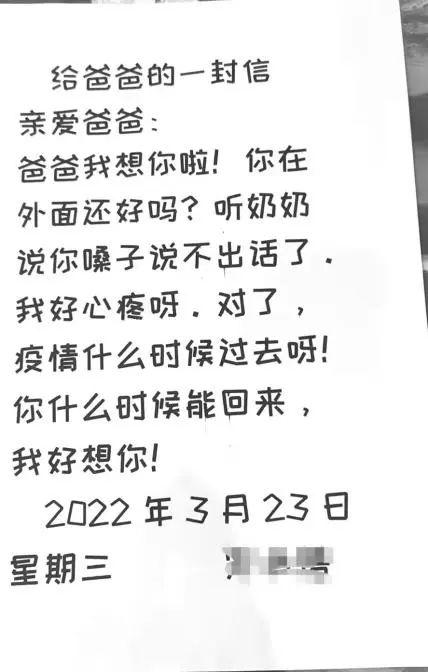 给爸爸的一封信
亲爱爸爸：
爸爸我想你啦！你在
外面还好吗？听奶奶
说你嗓子说不出话了.
我好心疼呀.对了，
疫情什么时候过去呀！
你什么时候能回来，
我好想你！
2022年3月23日
星期三